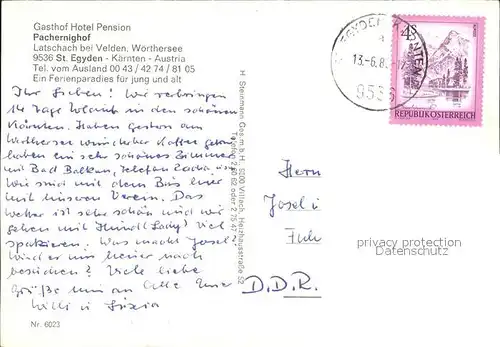 Gasthof Hotel Pension
Pachernighof
Latschach bei Velden, Wörthersee
9536 St. Egyden - Kärnten - Austria
Tel. vom Ausland 00 43 / 42 74 / 81 05
Ein Ferienparadies für jung und alt
Ihr Lieben! Wir verbringen
14 Tage Urlaub in den schönen
Kärnten. Haben gestern am
Wörthersee wunderbar Kaffee
haben ein sehr schönes Zimmer
mit Bad Balkon, Telefon
Wir sind mit dem Bus hier
mit unseren Verein. Das
Wetter ist sehr schön und wir
gehen mit Hündl Lady viel
spazieren. Was macht Josef?
Wird er uns heuer noch
besuchen? Viele liebe
Grüße an Alle Eure
Willi u
Nr. 6023
H. Steinmann Ges.m.b.H., 9500 Villach, Herzhausstraße 52
Telefon 2 80 62 oder 2 75 47
EGYDEN
a
13.-6.8
9536
4S
REPUBLIK ÖSTERREICH
Herrn
Josef
D.D.R.
privacy protection
watermark